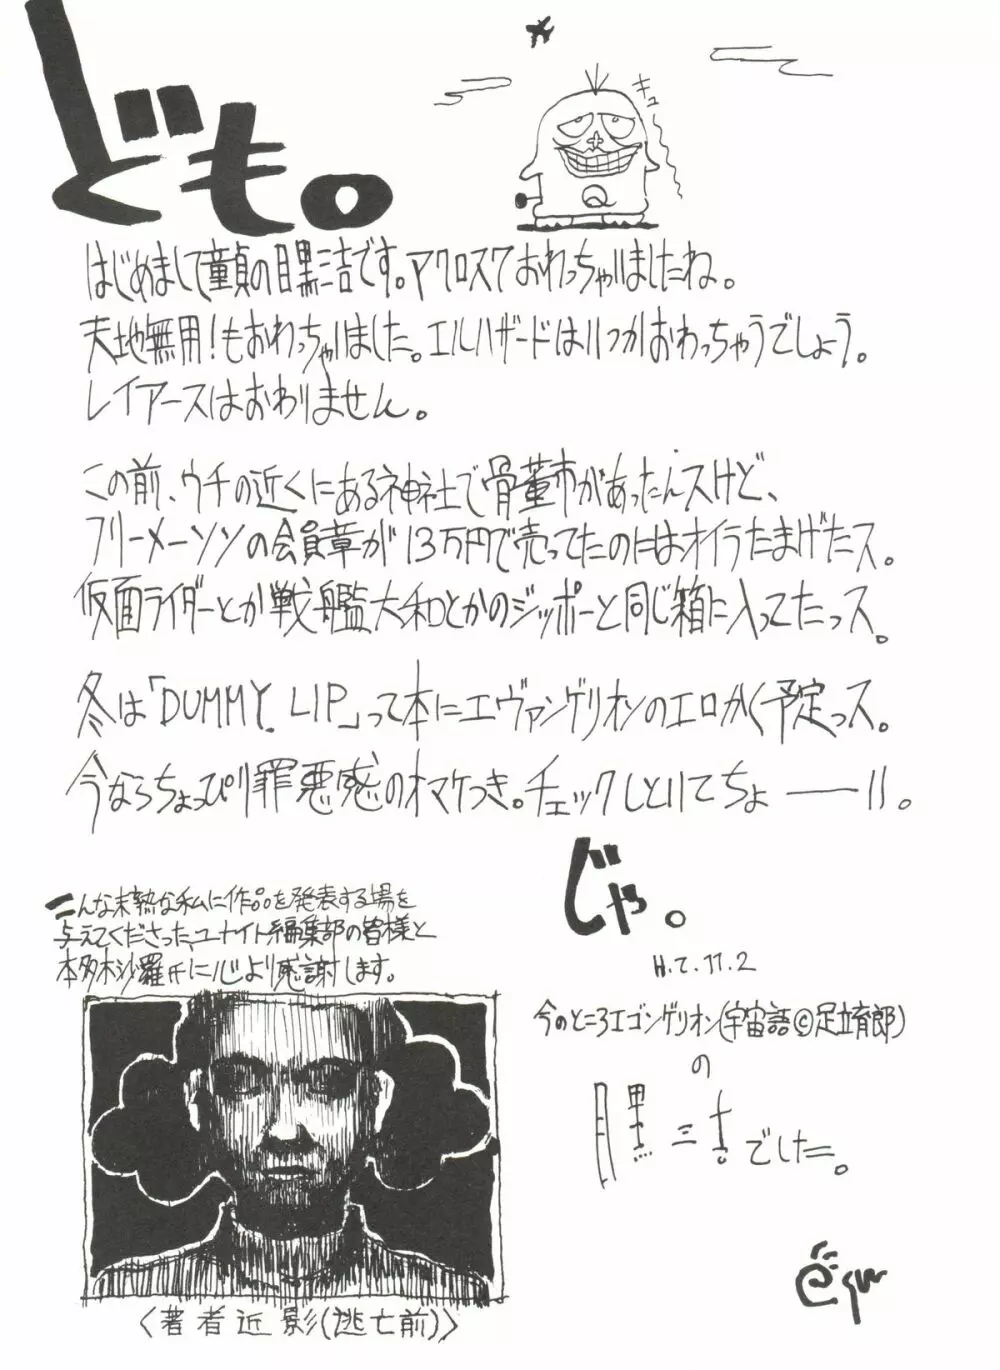 ども。
キュ
Q
はじめまして童貞の目黒三吉です。マクロス7おわっちゃいましたね。
天地無用!もおわっちゃいました。エルハザードはいつかおわっちゃうでしょう。
レイアースはおわりません。
この前、ウチの近くにある神社で骨董市があったんスけど、
フリーメーソンの会員章が13万円で売ってたのにはオイラたまげたス。
仮面ライダーとか戦艦大和とかのジッポーと同じ箱に入ってたっス。
冬は「DUMMY. LIP」って本にエヴァンゲリオンのエロかく予定っス。
今ならちょっぴり罪悪感のオマケつき。チェックしといてちょーーい。
じゃ。
H.7.11.2
こんな未熟な私に作品を発表する場を
与えてくださった、ユナイト編集部の皆様と
本多木沙羅氏に心より感謝します。
〈著者近影(逃亡前)〉
今のところエゴンゲリオン(宇宙語©足立育郎)
の
目黒三吉でした。